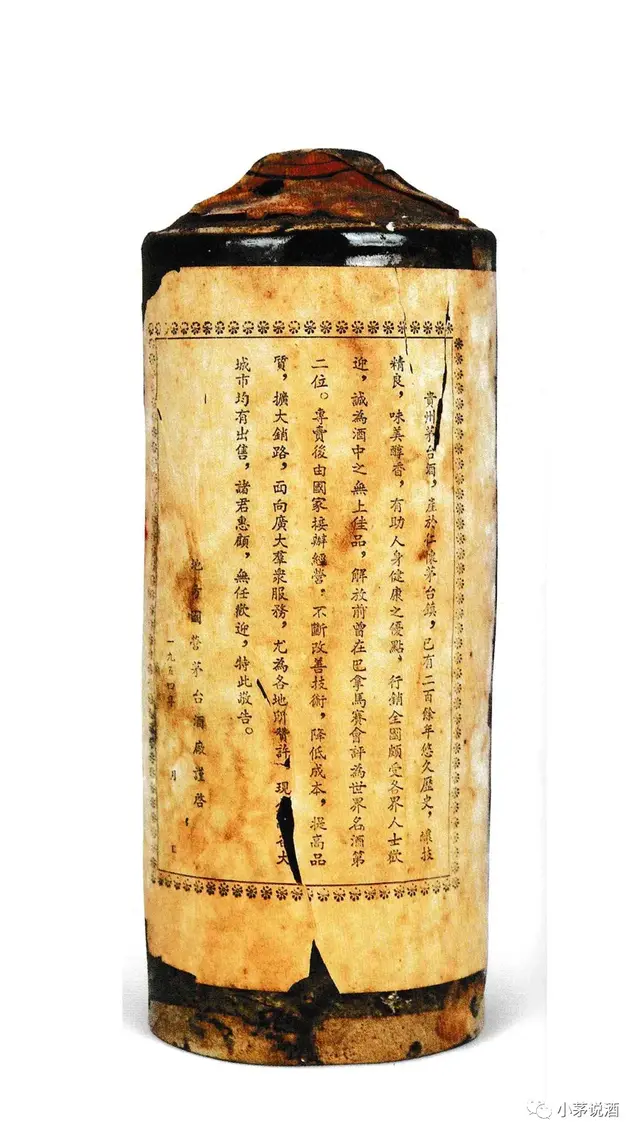 貴州茅台酒，產於仁懷茅台鎮，已有二百餘年悠久歷史，釀技
精良，味美醇香，有助人身健康之優點，行銷全國頗受各界人士歡
迎，誠為酒中之無上佳品，解放前曾在巴拿馬賽會評為世界名酒第
二位。專賣後由國家接辦經營，不斷改善技術，降低成本，提高品
質，擴大銷路，面向廣大羣衆服務，尤為各地所贊許，現
大
城市均有出售，諸君惠顧，無任歡迎，特此敬告。
地方國營茅台酒廠謹啓
一九五四年 月
小茅说酒